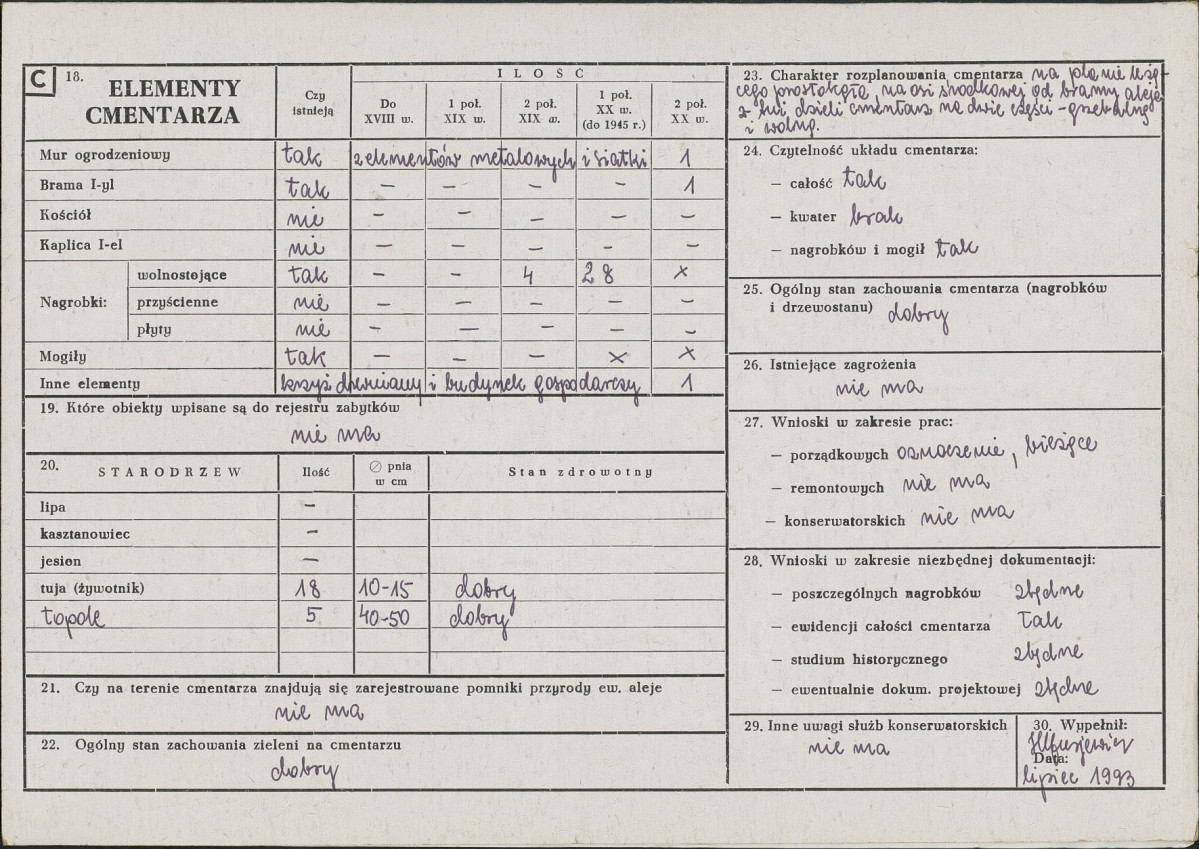 C 18. ELEMENTY CMENTARZA
Czy istnieją
ILOŚĆ
Do XVIII w.
1 poł. XIX w.
2 poł. XIX w.
1 poł. XX w. (do 1945 r.)
2 poł. XX w.
Mur ogrodzeniowy tak z elementów metalowych i siatki 1
Brama I-yl tak — — — — 1
Kościół nie — — — — —
Kaplica I-el nie — — — — —
Nagrobki:
wolnostojące tak — — 4 28 x
przyścienne nie — — — — —
płyty nie — — — — —
Mogiły tak — — — x x
Inne elementy krzyż drewniany i budynek gospodarczy 1
19. Które obiekty wpisane są do rejestru zabytków
nie ma
20. STARODRZEW Ilość ∅ pnia w cm Stan zdrowotny
lipa —
kasztanowiec —
jesion —
tuja (żywotnik) 18 10-15 dobry
topole 5 40-50 dobry
21. Czy na terenie cmentarza znajdują się zarejestrowane pomniki przyrody ew. aleje
nie ma
22. Ogólny stan zachowania zieleni na cmentarzu
dobry
23. Charakter rozplanowania cmentarza na planie leżą-
cego prostokąta, na osi środkowej od bramy aleja
z tui dzieli cmentarz na dwie części - grzebalną
i wolną.
24. Czytelność układu cmentarza:
— całość tak
— kwater brak
— nagrobków i mogił tak
25. Ogólny stan zachowania cmentarza (nagrobków
i drzewostanu) dobry
26. Istniejące zagrożenia
nie ma
27. Wnioski w zakresie prac:
— porządkowych oznaczenie, bieżące
— remontowych nie ma
— konserwatorskich nie ma
28. Wnioski w zakresie niezbędnej dokumentacji:
— poszczególnych nagrobków zbędne
— ewidencji całości cmentarza tak
— studium historycznego zbędne
— ewentualnie dokum. projektowej zbędne
29. Inne uwagi służb konserwatorskich
nie ma
30. Wypełnił:
Data:
lipiec 1993